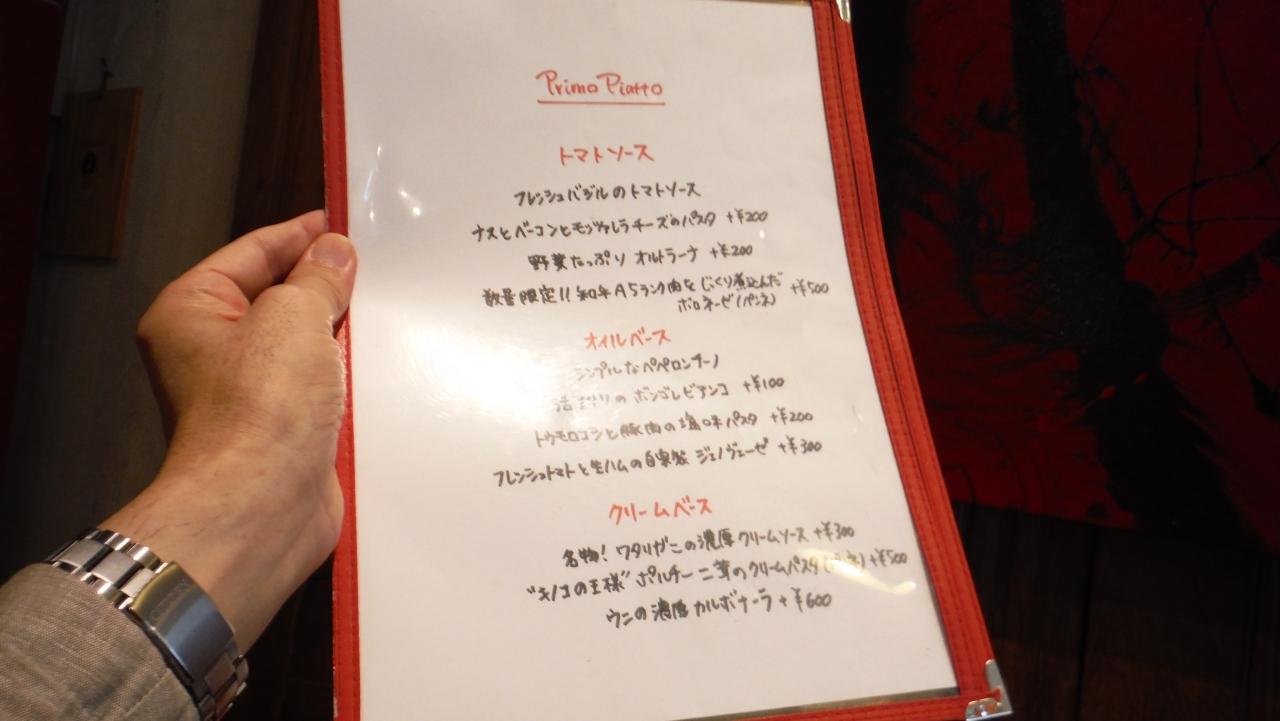 Primo Piatto
トマトソース
フレッシュバジルのトマトソース
ナスとベーコンとモッツァレラチーズのパスタ +¥200
野菜たっぷり オルトラーナ +¥200
数量限定!! 和牛A5ランク肉をじっくり煮込んだ
ボロネーゼ(パンネ) +¥500
オイルベース
シンプルなペペロンチーノ
のボンゴレビアンコ +¥100
トウモロコシと豚肉の塩味パスタ +¥200
フレッシュトマトと生ハムの自家製 ジェノヴェーゼ +¥300
クリームベース
名物! ワタリガニの濃厚クリームソース +¥300
"キノコの王様" ポルチーニ茸のクリームパスタ +¥500
ウニの濃厚カルボナーラ +¥600